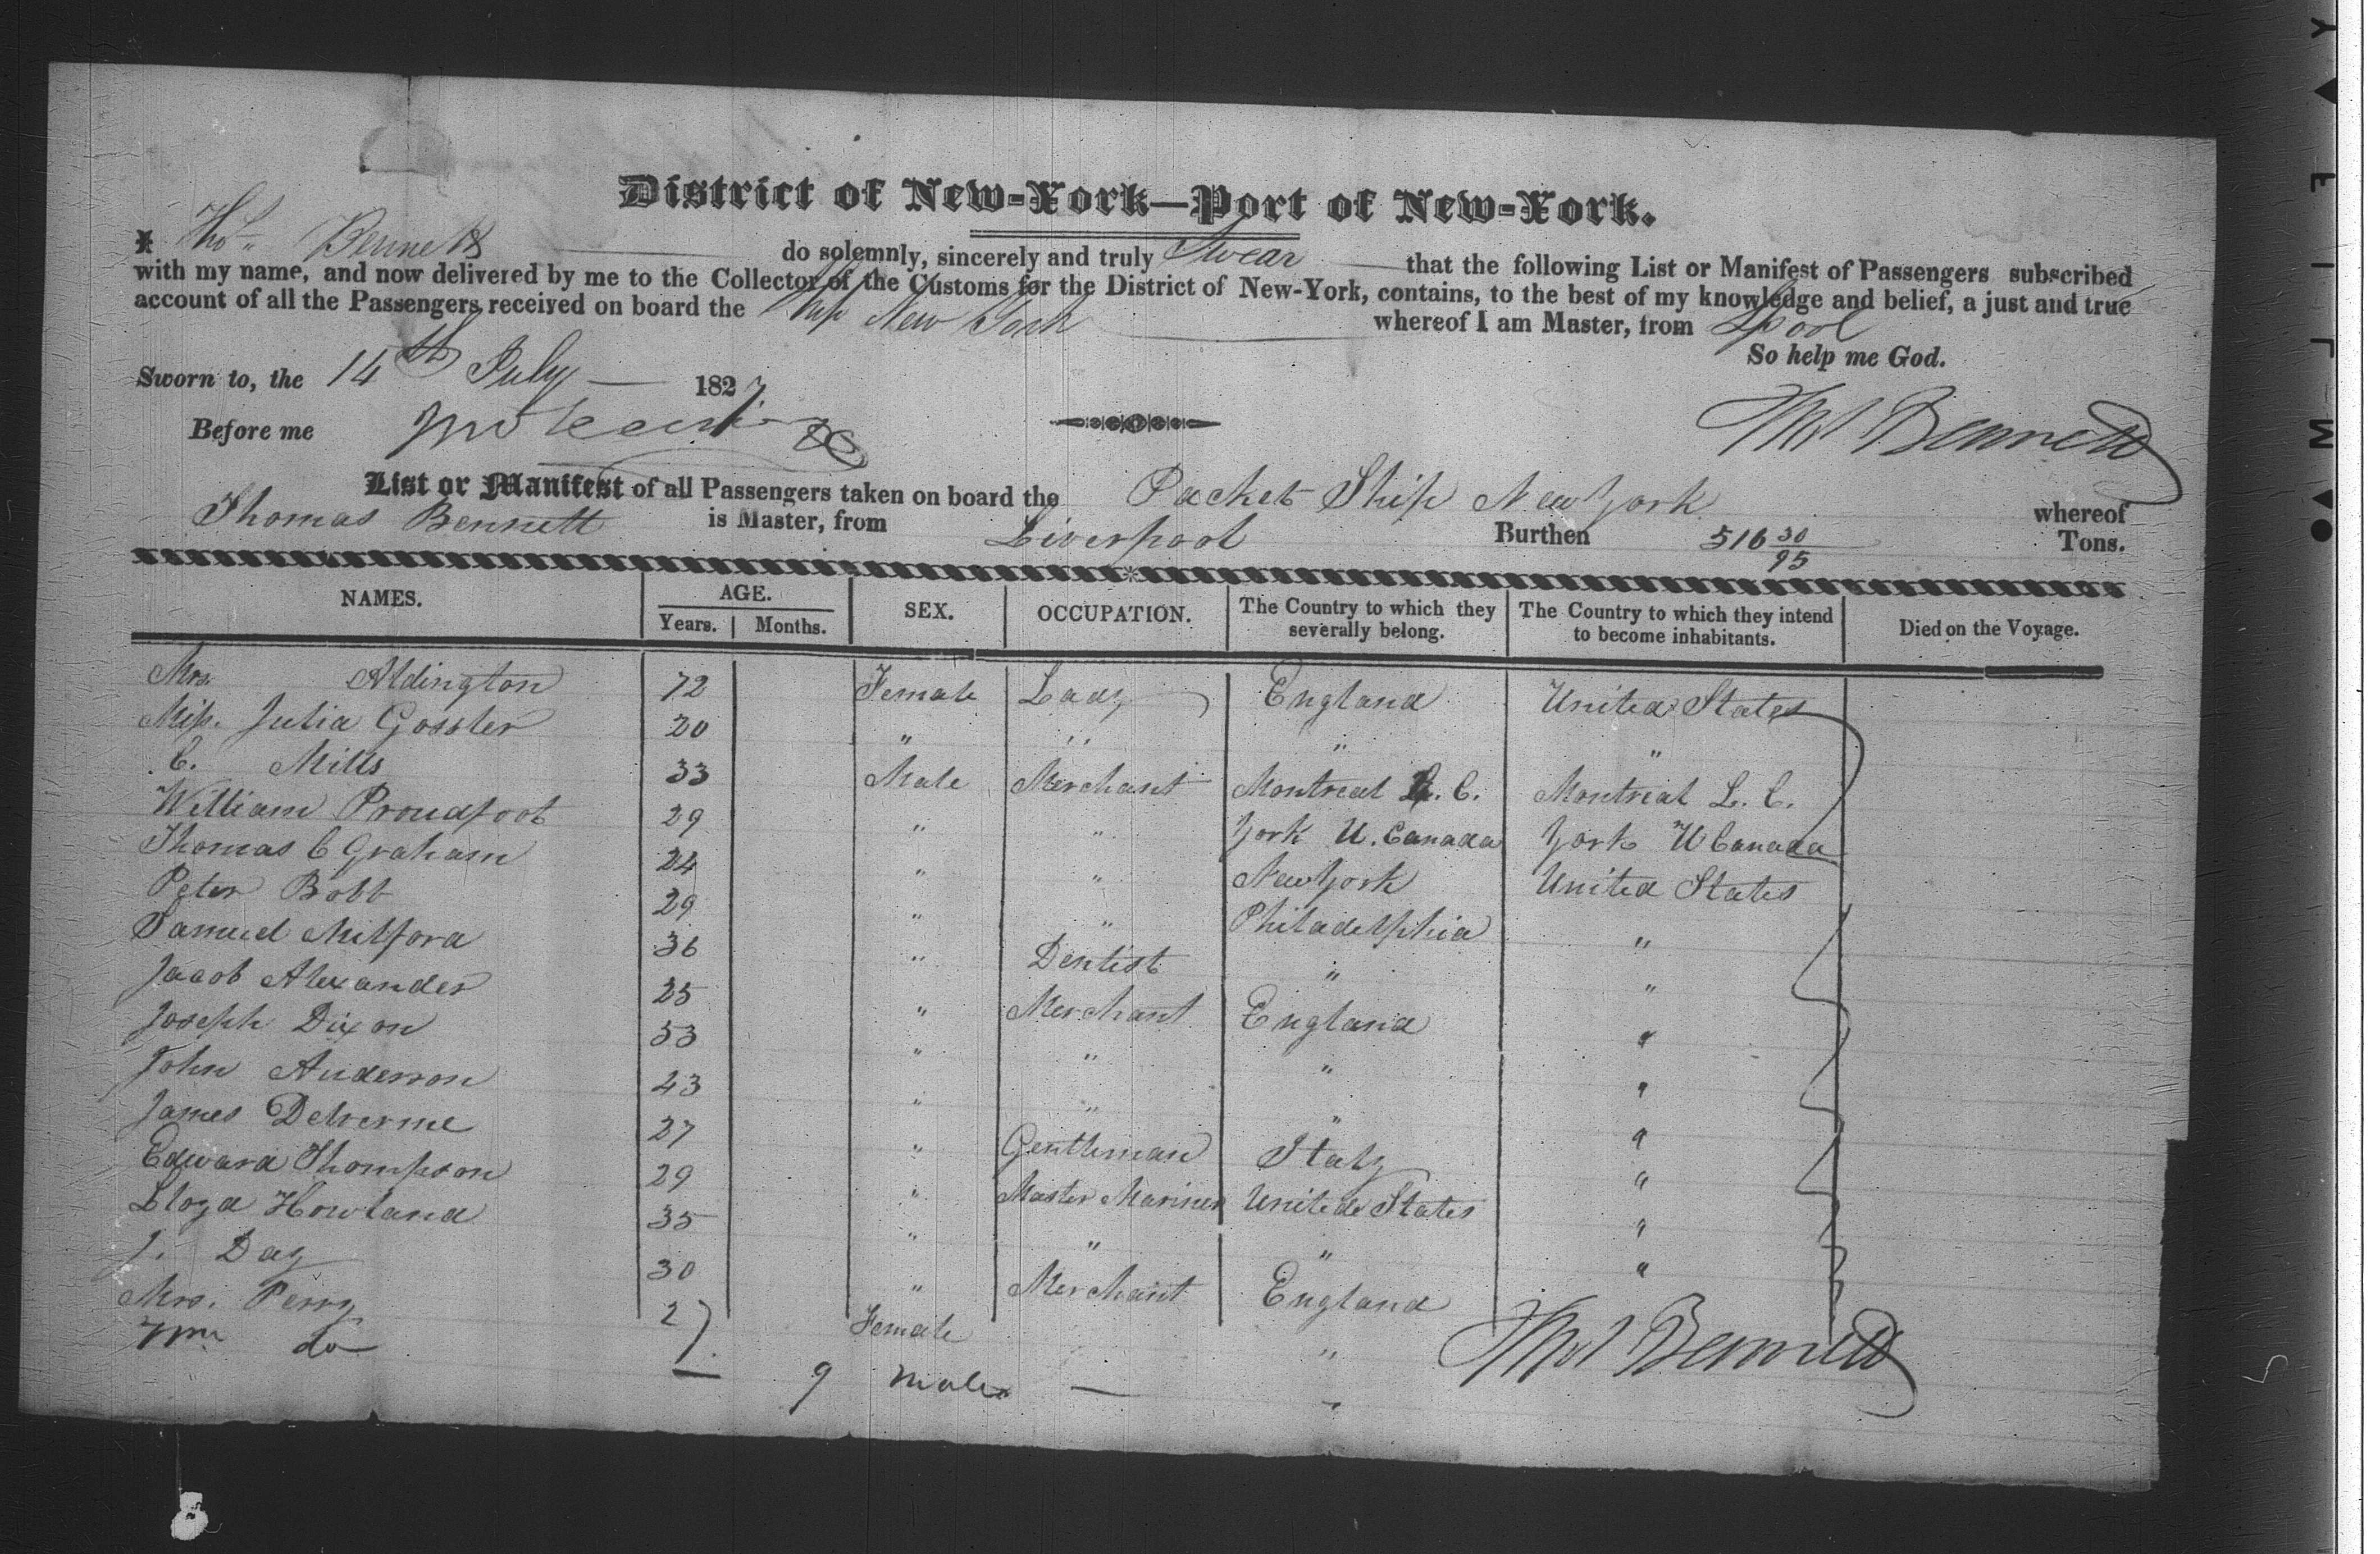 District of New-York—Port of New-York.
I Thos Bennett do solemnly, sincerely and truly Swear that the following List or Manifest of Passengers subscribed
with my name, and now delivered by me to the Collector of the Customs for the District of New-York, contains, to the best of my knowledge and belief, a just and true
account of all the Passengers received on board the Ship New York whereof I am Master, from Lpool
So help me God.
Sworn to, the 14th July 1827.
Before me
Thos Bennett
List or Manifest of all Passengers taken on board the Packet Ship New York whereof
Thomas Bennett is Master, from Liverpool Burthen 516 30/95 Tons.
NAMES. AGE. Years. Months. SEX. OCCUPATION. The Country to which they severally belong. The Country to which they intend to become inhabitants. Died on the Voyage.
Mrs. Aldington 72 Female Lady England United States
Miss. Julia Gossler 20 " " " "
C. Mills 33 Male Merchant Montreal L. C. Montreal L. C.
William Proudfoot 29 " " York U. Canada York U Canada
Thomas C Graham 24 " " New York United States
Peter Bobb 29 " " Philadelphia "
Samuel Milford 36 " Dentist " "
Jacob Alexander 25 " Merchant England "
Joseph Dixon 53 " " " "
John Anderson 43 " " " "
James Delverme 27 " Gentleman Italy "
Edward Thompson 29 " Master Mariner United States "
Lloyd Howland 35 " " " "
J. Day 30 " Merchant England
Mrs. Perry 27. Female "
Wm do — 9 Male — "
Thos Bennett